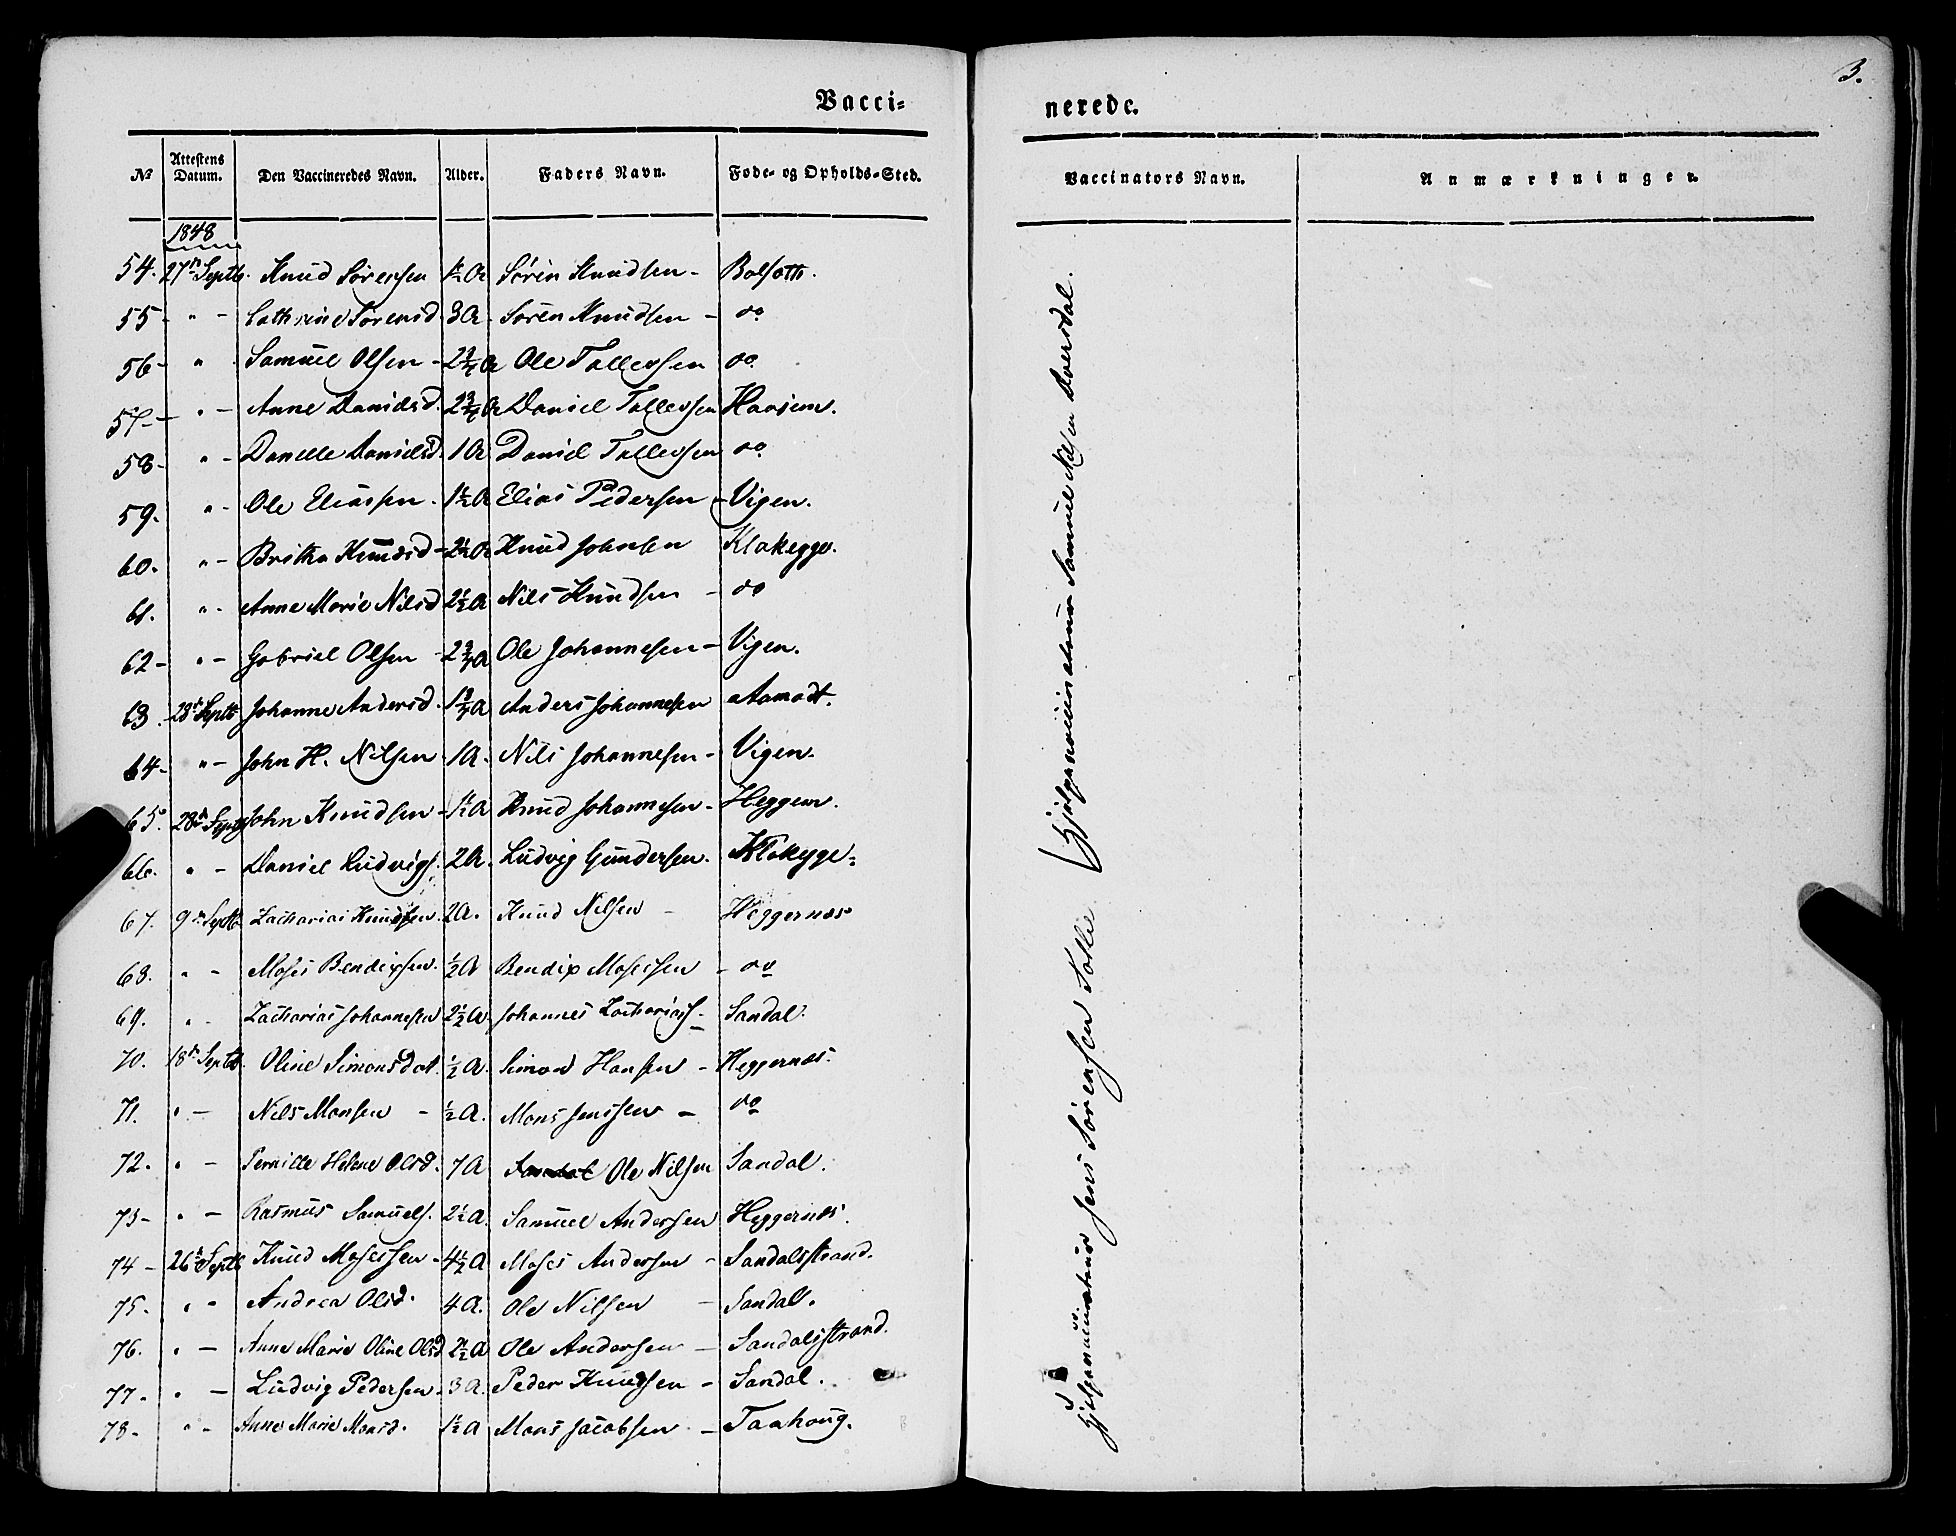 3.
Vacci-
nerede.
No Attestens Datum. Den Vaccineredes Navn. Alder. Faders Navn. Føde- og Opholds-Sted.
Vaccinators Navn. Anmærkninger.
1848
54. 27de Septb. Knud Sørensen 1½ A Sørin Knudsen - Bolsætt.
55 - " - Cathrine Sørensd. 3 A - Søren Knudsen - do
56 - " Samuel Olsen - 2¾ A Ole Tollevsen do.
57 - " - Anne Danielsd. 2¾ A Daniel Tollevsen Haajem.
58 - " - Danelle Danielsd. 1 A Daniel Tollevsen do
59. " - Ole Eliassen. 1½ A Elias Pedersen - Vigen.
60. " - Britha Knudsd - 2½ A Knud Johnsen Klakegge.
61. " - Anne Marie Nilsd 2½ A Nils Knudsen - do
62 - " - Gabriel Olsen - 2¾ A Ole Johannesen - Vigen.
63. 28de Septb Johanne Andersd. 1¾ A Anders Johannesen Aamodt.
64 - " - John H. Nilsen 1 A. Nils Johannesen - Vigen.
65. 28de Septb John Knudsen - 1½ A Knud Johannesen - Heggem.
66. " - Daniel Ludvigs. 2 A. Ludvig Gundersen. Klakegge.
67. 9de Septb. Zacharias Knudsen. 2 A. Knud Nilsen - Heggernæs
68. " - Moses Bendixsen. ½ A Bendix Mosessen - do
69. " - Zacharias Johannesen 2½ A. Johannes Zachariass. - Sandal.
70. 18de Septb. Oline Simonsdat. ½ A. Simon Hansen - Heggernæs.
71. " - Nils Monsen - ½ A. Mons Jenssen - do
72. " - Pernille Helene Olsd. 7 A Ole Nilsen Sandal.
73 - " - Rasmus Samuels. 2½ A. Samuel Andersen Heggernæs.
74 - 26de Septb Knud Mosessen - 4½ A Moses Andersen - Sandalsstrand.
75. " - Andrea Olsd. 4 A. Ole Nilsen - Sandal.
76. " - Anne Marie Oline Olsd 2½ A Ole Andersen - Sandalsstrand.
77. " - Ludvig Pedersen - 3 A. Peder Knudsen - Sandal.
78. " - Anne Marie Monsd. 1½ A Mons Jacobsen - Taahoug.
Hjelpevaccinateur Samuel Nilsen Aversdal.
Hjelpevaccinateur Jens Sørensen Solle